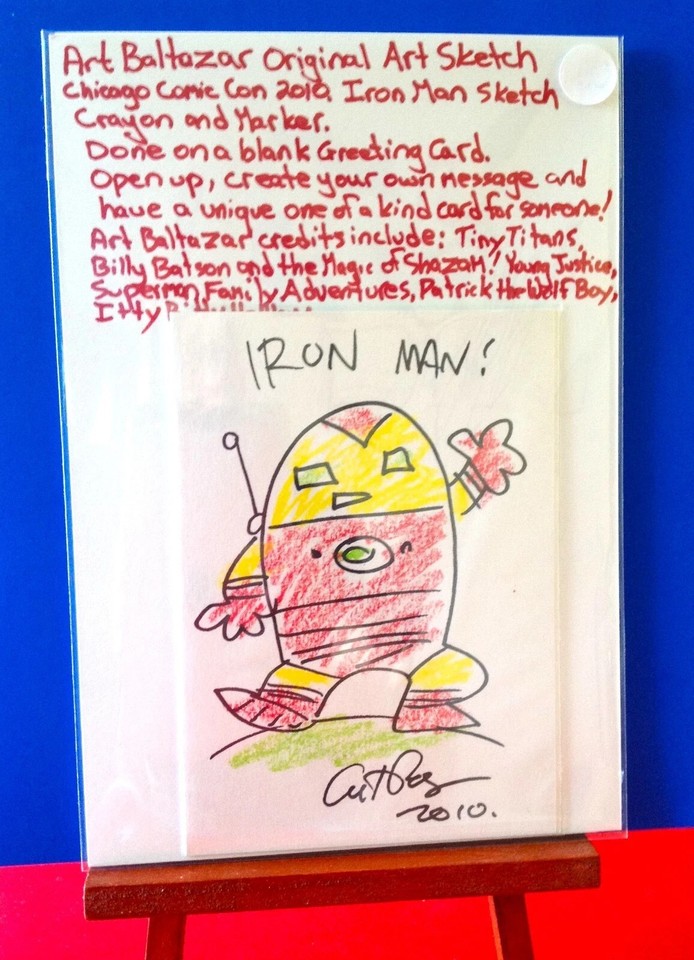 Art Baltazar Original Art Sketch
Chicago Comic Con 2010. Iron Man Sketch
Crayon and Marker.
Done on a blank Greeting Card.
Open up, create your own message and
have a unique one of a kind card for someone!
Art Baltazar credits include: Tiny Titans,
Billy Batson and the Magic of Shazam! Young Justice,
Superman Family Adventures, Patrick the Wolf Boy,
Itty
IRON MAN!
2010.